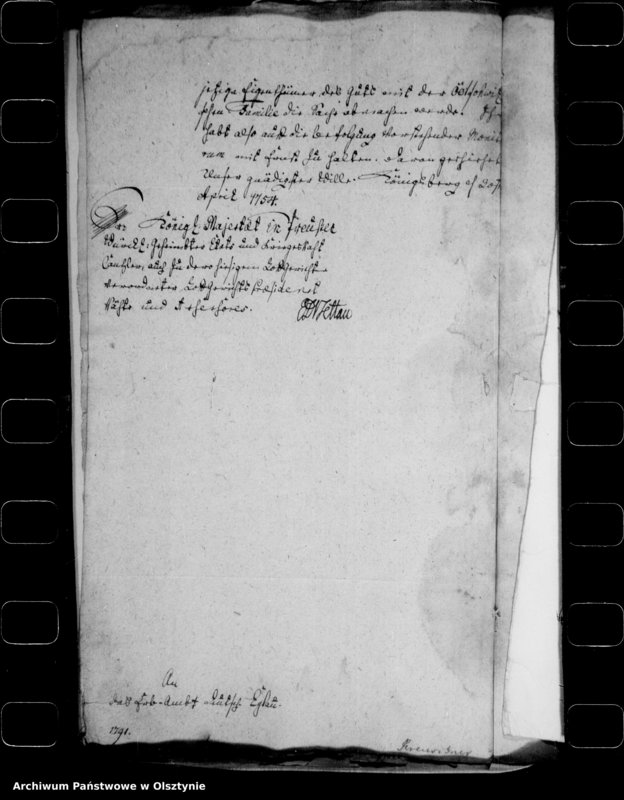 jetzige Eigenthümer des Guts mit der
schen Familie die Sache abmachen werde. Ihr
habt also auf die Befolgung vorstehender Moni-
rum mit Ernst zu halten. Daran geschiehet
Unser gnädigster Wille. Königsberg
April 1754.
Königl: Majestät in Preußen
Würckl: Geheimbter Etats und Kriegs
Cantzler, auch zu dero hiesigen HoffGerichte
verordneter HoffGerichts Præsident
Räthe und Assessores.
Tettau
An
das Erb-Ambt Deutsch Eylau.
1791.
Archiwum Państwowe w Olsztynie